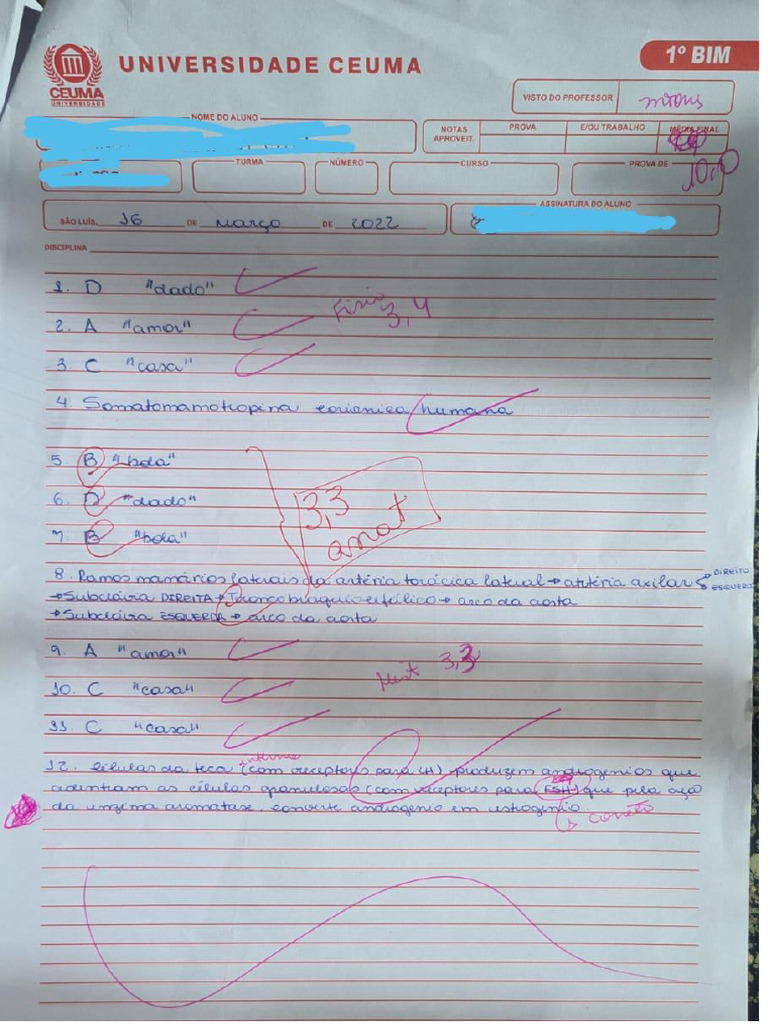 1º BIM
UNIVERSIDADE CEUMA
CEUMA
UNIVERSIDADE
VISTO DO PROFESSOR
NOME DO ALUNO
NOTAS APROVEIT.
PROVA
E/OU TRABALHO
MÉDIA FINAL
10,0
TURMA
NÚMERO
CURSO
PROVA DE
SÃO LUÍS, 16 DE março DE 2022
ASSINATURA DO ALUNO
DISCIPLINA
1. D "dado"
Fisio 3,4
2. A "amor"
3. C "casa"
4. Somatomamotropina coriônica humana
5. B "bola"
6. D "dado"
3,3 anat
7. B "bola"
8. Ramos mamários laterais da artéria torácica lateral → artéria axilar DIREITO
ESQUERDO
→ Subclávia DIREITA → Tronco braquiocefálico → arco da aorta
→ Subclávia ESQUERDA → arco da aorta
9. A "amor"
3,3
10. C "casa"
11. C "casa"
interna
12. Células da teca (com receptores para LH) produzem androgênios que
adentram as células granulosas (com receptores para FSH) que pela ação
da enzima aromatase, converte androgênio em estrogênio
correto